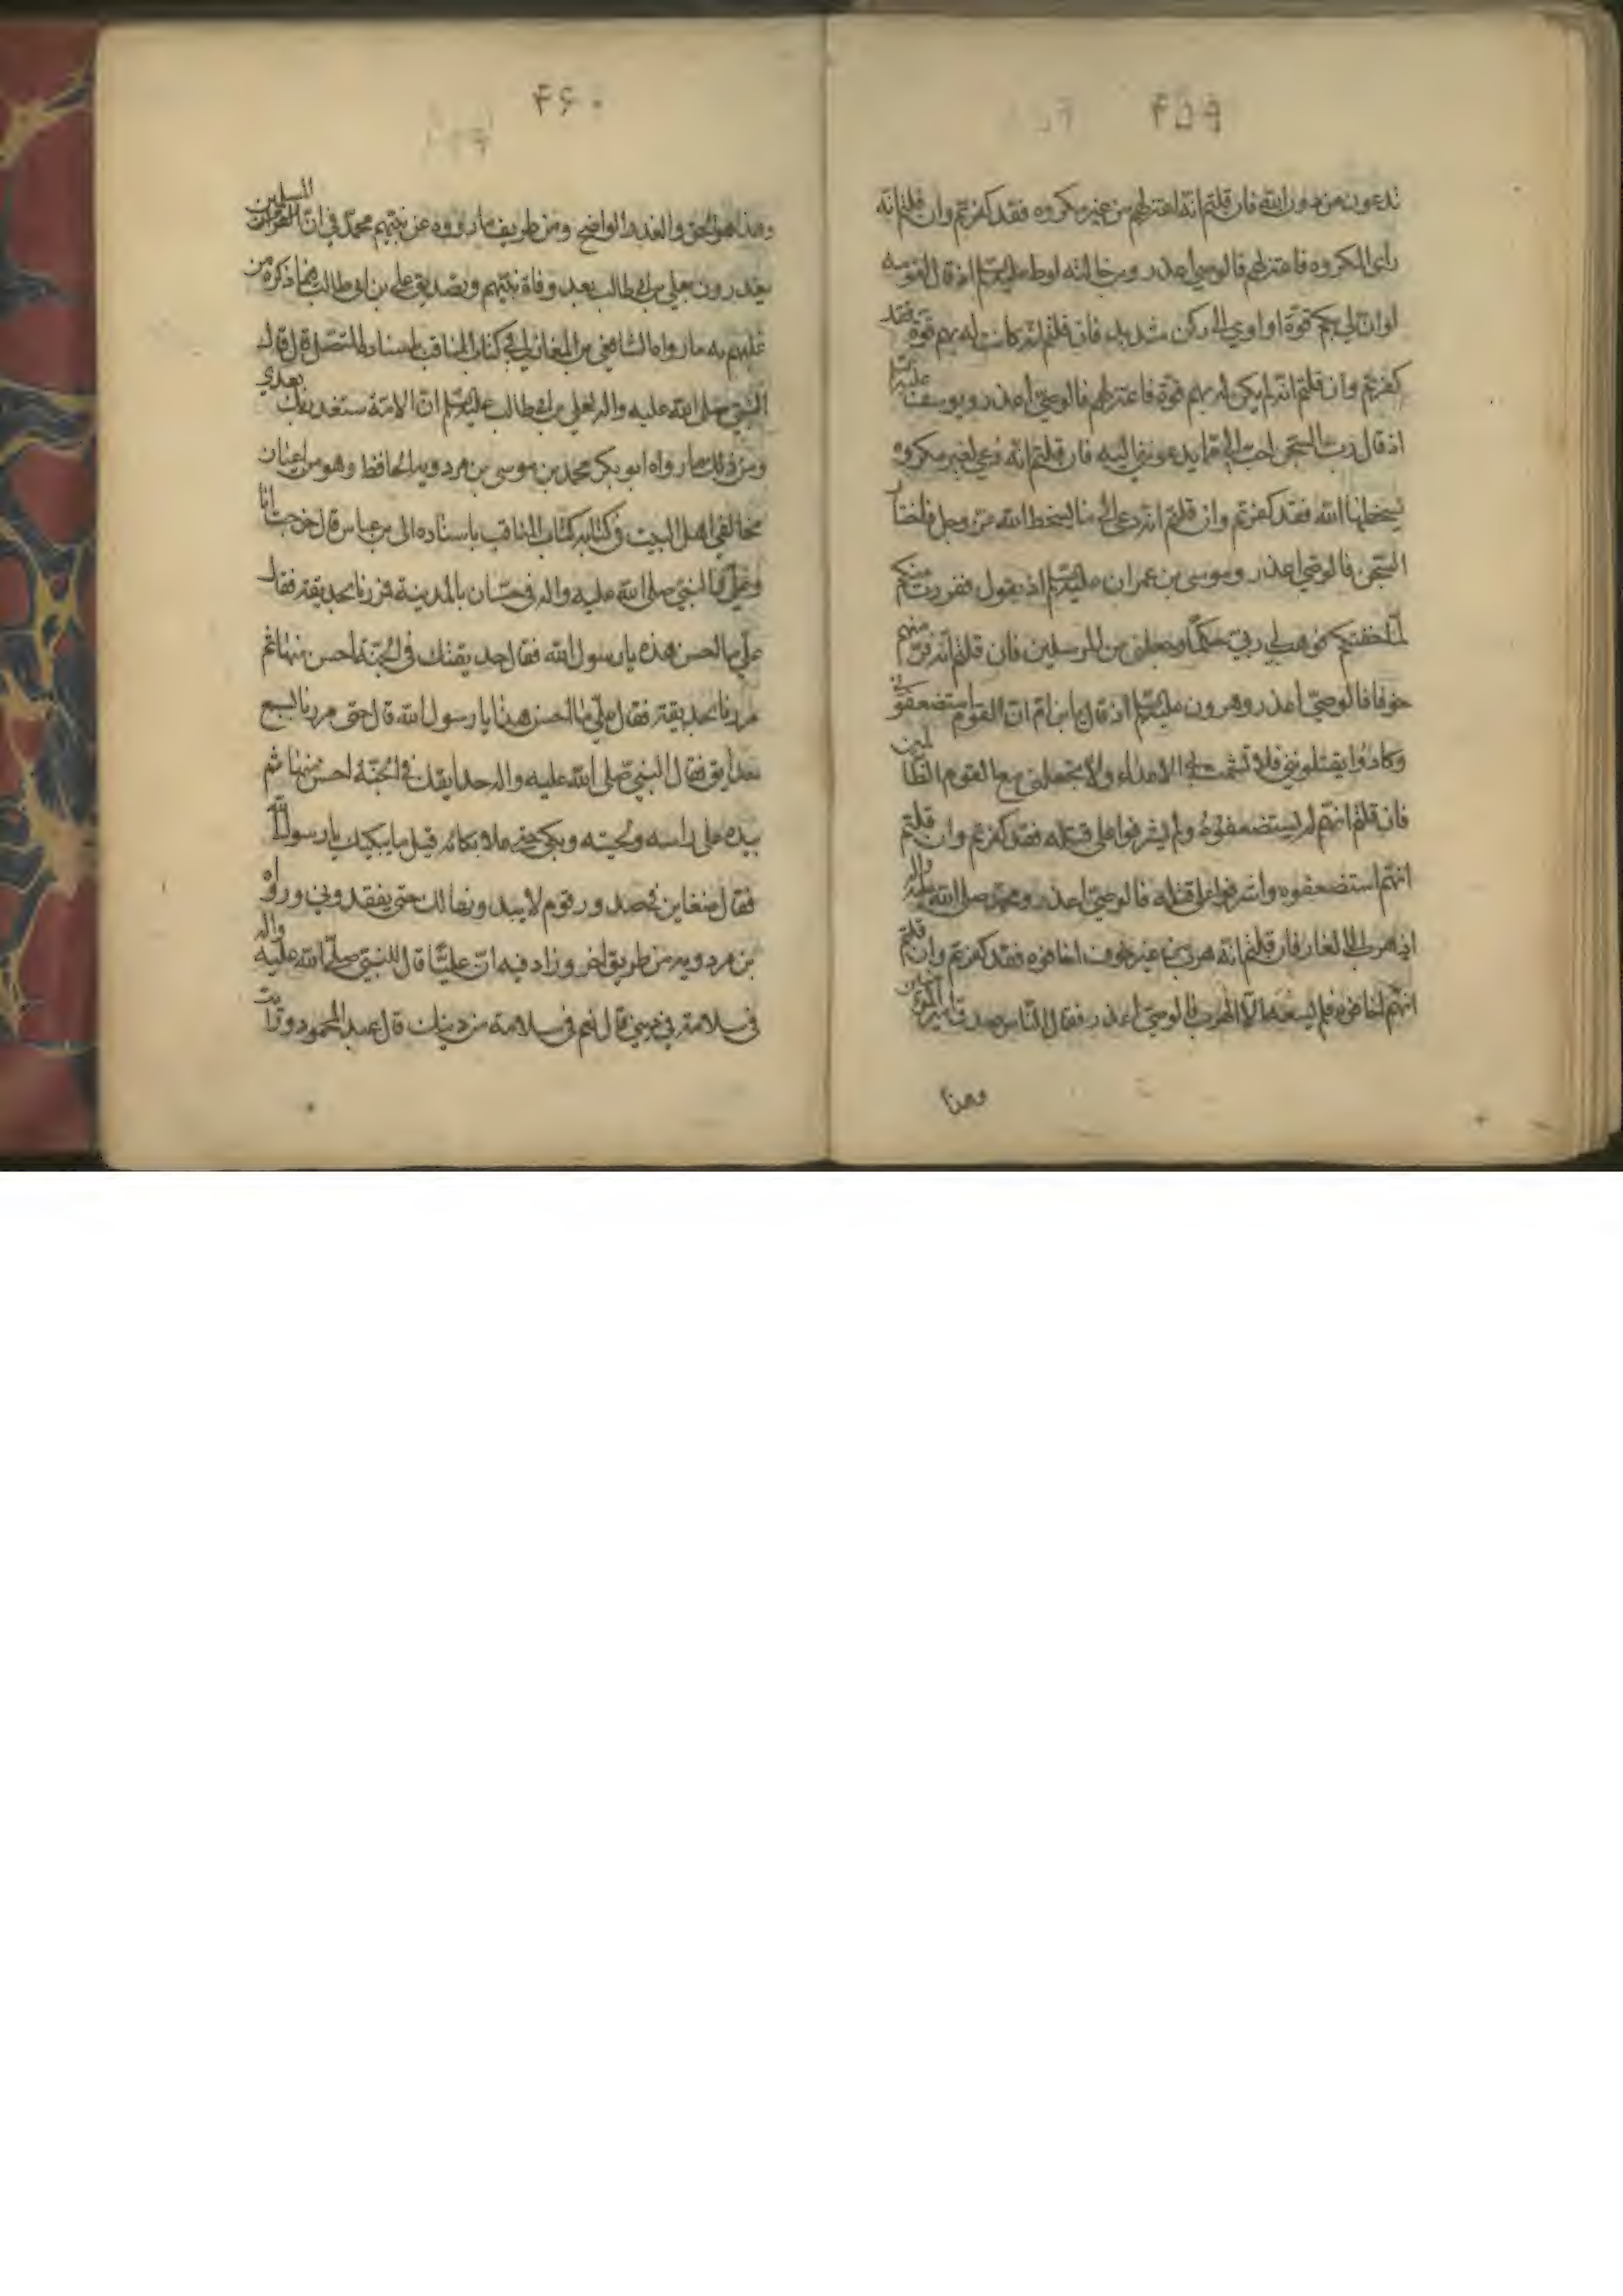 ۴۵۹
تدعون من دون الله فان قلتم انه اعتزلهم من غير مكروه فقد كفرتم وان قلتم انه
راى المكروه فاعتزلهم فالوصي اعذر وبن خالته لوط عليه السلم اذ قال لقومه
لو ان لي بكم قوة او اوي الى ركن شديد فان قلتم انه كانت له بهم قوة فقد
كفرتم وان قلتم انه لم يكن له بهم قوة فاعتزلهم فالوصي اعذر ويوسف عليه السلم
اذ قال رب السجن احب الي مما يدعونني اليه فان قلتم انه دعي لغير مكروه
يسخط الله فقد كفرتم وان قلتم انه دعي الى ما يسخط الله عز وجل فاختار
السجن فالوصي اعذر وموسى بن عمران عليه السلم اذ يقول ففررت منكم
لما خفتكم فوهب لي ربي حكما وجعلني من المرسلين فان قلتم انه فر منهم
خوفا فالوصي اعذر وهرون عليه السلم اذ قال يا بن ام ان القوم استضعفوني
وكادوا يقتلونني فلا تشمت بي الاعداء ولا تجعلني مع القوم الظالمين
فان قلتم انهم لم يستضعفوه ولم يشرفوا على قتله فقد كفرتم وان قلتم
انهم استضعفوه واشرفوا على قتله فالوصي اعذر ومحمد صلى الله عليه واله
اذ هرب الى الغار فان قلتم انه هرب من غير خوف اخافوه فقد كفرتم وان قلتم
انهم اخافوه فلم يسعه الا الهرب فالوصي اعذر فقال الناس صدقت يا امير المؤمنين
وهذا
۴۶۰
وهذا هو الحق والعذر الواضح ومن طريف ما رووه عن نبيهم محمد في ان المسلمين
يغدرون بعلي بن ابي طالب بعد وفاة نبيهم وتصديق علي بن ابي طالب فيما ذكره من
عليهم به ما رواه الشافعي بن المغازلي في كتاب المناقب باسناده المتصل قال قال
النبي صلى الله عليه واله لعلي بن ابي طالب عليه السلم ان الامة ستغدر بك بعدي
ومن ذلك ما رواه ابو بكر محمد بن موسى بن مردويه الحافظ وهو من اعيان
مخالفي اهل البيت في كتابه كتاب المناقب باسناده الى بن عباس قال خرجت انا
وعلي والنبي صلى الله عليه واله في حسان بالمدينة فمررنا بحديقة فقال
علي ما احسن هذه يا رسول الله فقال حديقتك في الجنة احسن منها ثم
مررنا بحديقة فقال علي ما احسن هذا يا رسول الله قال حتى مررنا بسبع
حدايق فقال النبي صلى الله عليه واله حدايقك في الجنة احسن منها ثم
بيده على راسه ولحيته وبكى حتى علا بكائه قيل ما يبكيك يا رسول الله
فقال ضغاين في صدور قوم لا يبدونها لك حتى يفقدوني ورواه
بن مردويه من طريق اخر وزاد فيه ان عليا قال للنبي صلى الله عليه واله
في سلامة في ديني قال نعم في سلامة من دينك قال عبد المحمود